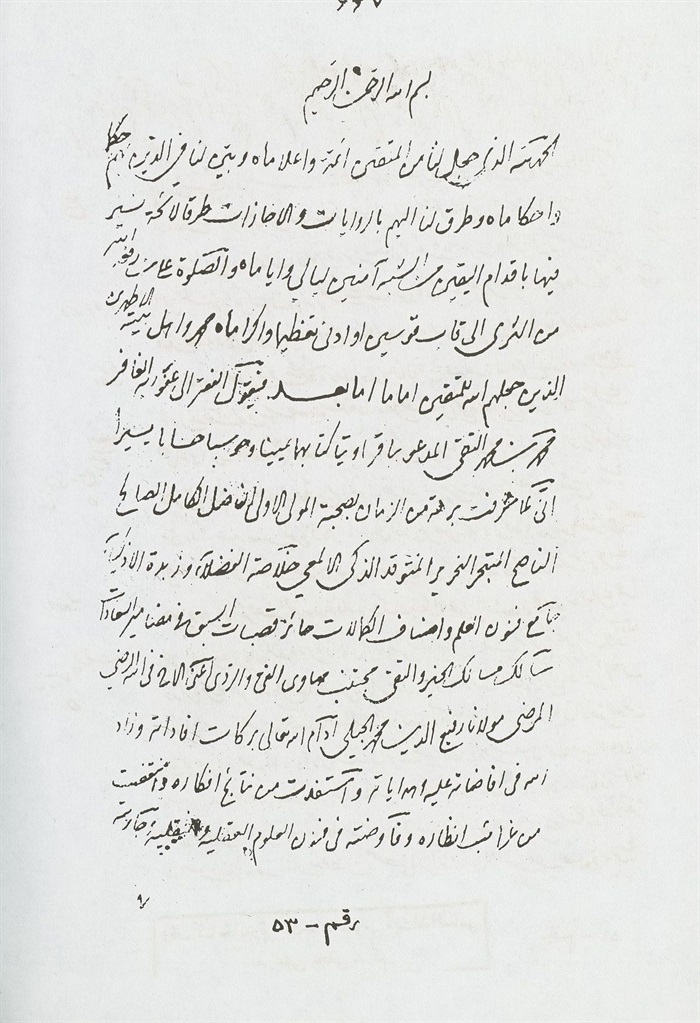 بسم الله الرحمن الرحيم
الحمد لله الذي جعل لنا من المتقين ائمة واعلاما وبين لنا في الذين حكما
واحكاما وطرق لنا اليهم بالروايات والاجازات طرقا لائحة نسير
فيها باقدام اليقين من الشبه آمنين ليالي واياما والصلوة على من رفعه الله
من الثرى الى قاب قوسين او ادنى تعظيما واكراما محمد واهل بيته الاطهرين
الذين جعلهم الله للمتقين اماما اما بعد فيقول الفقر الى عفو ربه الغافر
محمد بن محمد التقي المدعو بباقر اوتيا كتابهما يمينا وحوسبا حسابا يسيرا
اني لما شرفت برهة من الزمان بصحبة المولى الاولى الفاضل الكامل الصالح
الناصح المتبحر النحرير المتوقد الذكي الالمعي خلاصة الفضلاء وزبدة الاذكياء
جامع فنون العلم واصناف الكمالات حائز قصبات السبق في مضامير السعادات
سالك مسالك الخير والتقى مجتنب مهاوى الغي والردى اعني الاخ في الله الرضي
المرضي مولانا رفيع الدين محمد الجيلي ادام الله تعالى بركات افاداته وزاد
الله في افاضاته عليه وهداياته واستفدت من نتائج افكاره واقتطفت
من غرائب انظاره وفاوضته في فنون العلوم العقلية والنقلية وجاريته
رقم - ٥٣